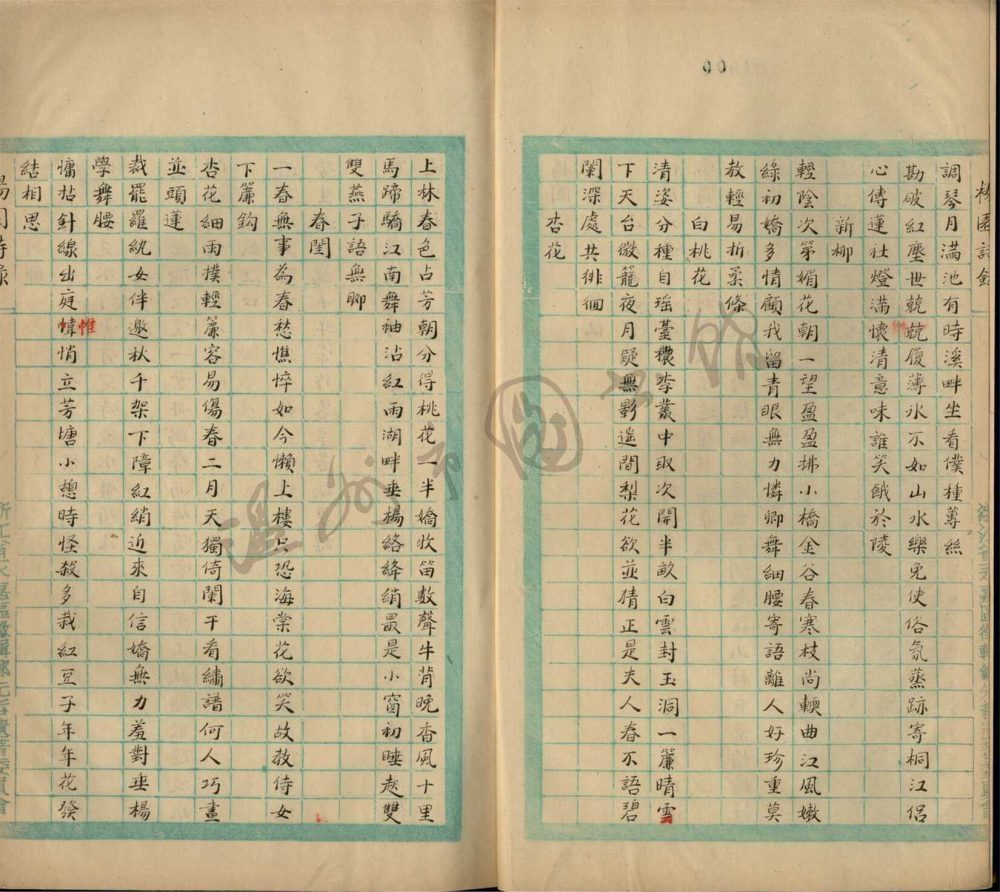 調琴月滿池有時溪畔坐看僕種蓴絲
勘破紅塵世兢兢履薄氷不如山水樂免使俗氛蒸跡寄桐江侶
心傳蓮社燈滿懷清意味誰笑餓於陵
新柳
輕陰次第媚花朝一望盈盈拂小橋金谷春寒枝尚輭曲江風嫩
綠初嬌多情顧我留青眼無力憐卿舞細腰寄語離人好珍重莫
教輕易折柔條
白桃花
清姿分種自瑶臺穠李叢中取次開半畝白雲封玉洞一簾晴雪
下天台微籠夜月疑無影遥間梨花欲並猜正是夫人春不語碧
闌深處共徘徊
杏花
上林春色占芳朝分得桃花一半嬌牧笛數聲牛背晚香風十里
馬蹄驕江南舞袖沾紅雨湖畔垂楊絡絳綃最是小窗初睡起雙
雙燕子語無聊
春閨
一春無事為春愁憔悴如今懶上樓只恐海棠花欲笑故教侍女
下簾鈎
杏花細雨撲輕簾容易傷春二月天獨倚闌干看繡譜何人巧畫
並頭蓮
裁罷羅紈女伴邀秋千架下障紅綃近來自信嬌無力羞對垂楊
學舞腰
慵拈針線出庭幃帷悄立芳塘小憩時怪殺多栽紅豆子年年花發
結相思